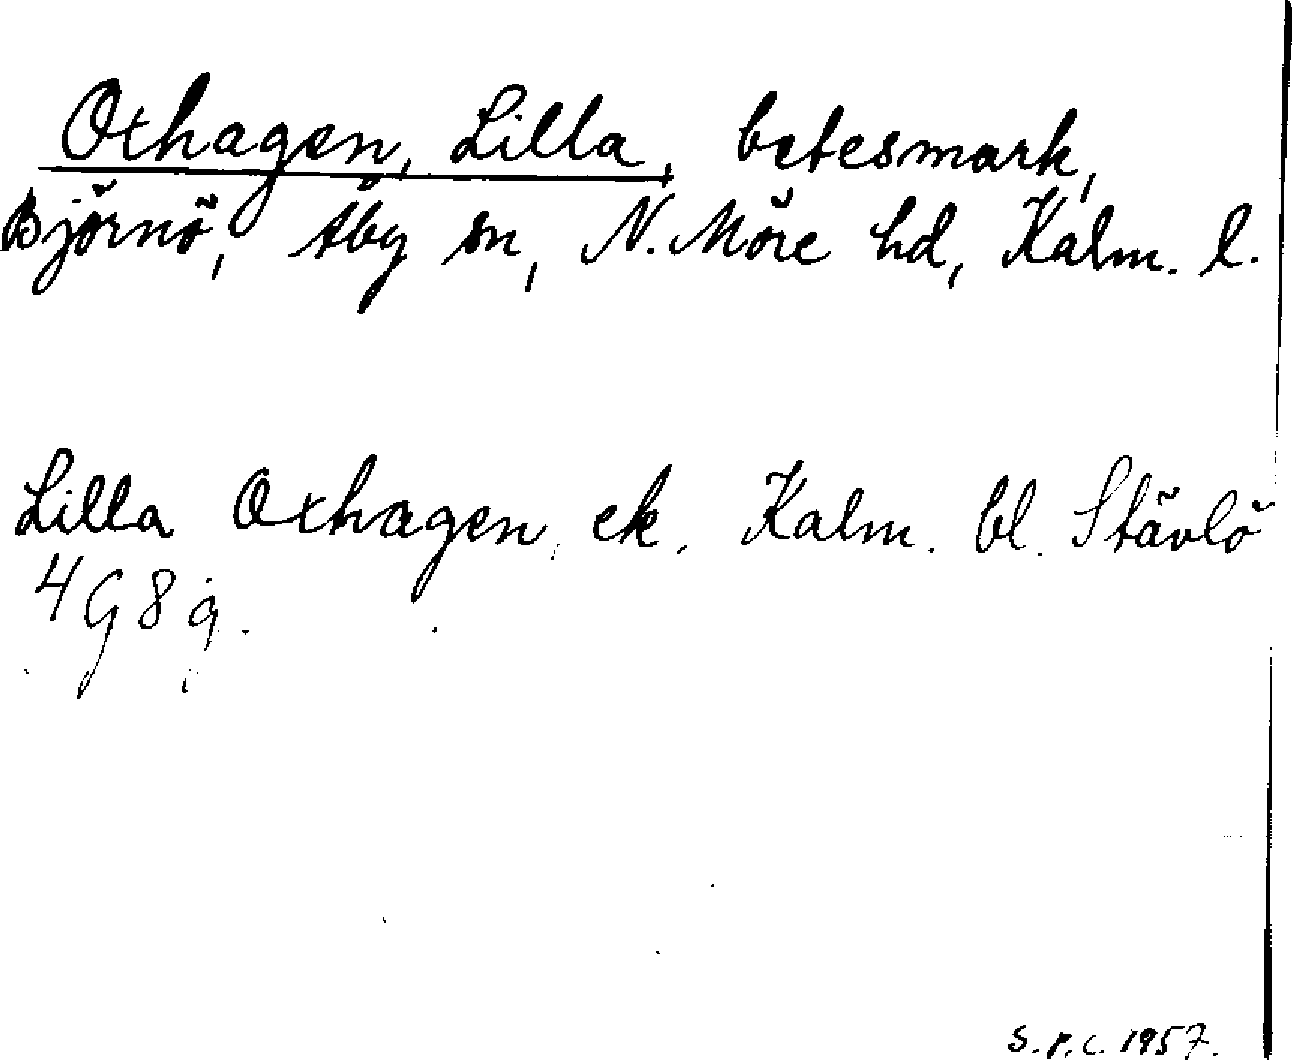 Oxhagen, Lilla, betesmark,
Björnö, Åby sn, N. Möre hd, Kalm. l.
Lilla Oxhagen, ek. Kalm. bl. Stävlö
4G8g.
S.P.C. 1957.